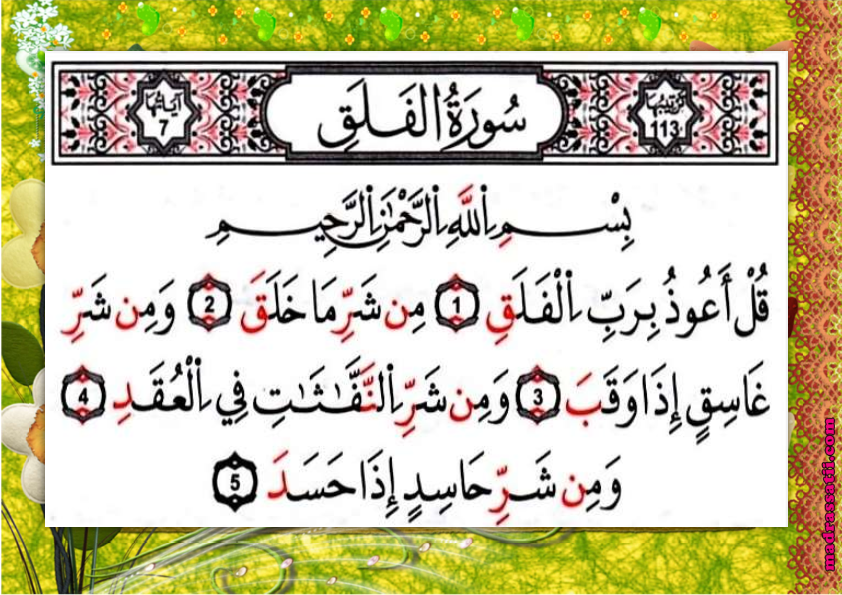 ترتيبها 113
سُورَةُ الْفَلَقِ
آياتها 7
بِسْمِ اِللَّهِ اِلرَّحْمَٰنِ اِلرَّحِيمِ
قُلْ أَعُوذُ بِرَبِّ اِلْفَلَقِ 1 مِن شَرِّ مَا خَلَقَ 2 وَمِن شَرِّ
غَاسِقٍ إِذَا وَقَبَ 3 وَمِن شَرِّ اِلنَّفَّٰثَٰتِ فِي اِلْعُقَدِ 4
وَمِن شَرِّ حَاسِدٍ إِذَا حَسَدَ 5
madrassatii.com